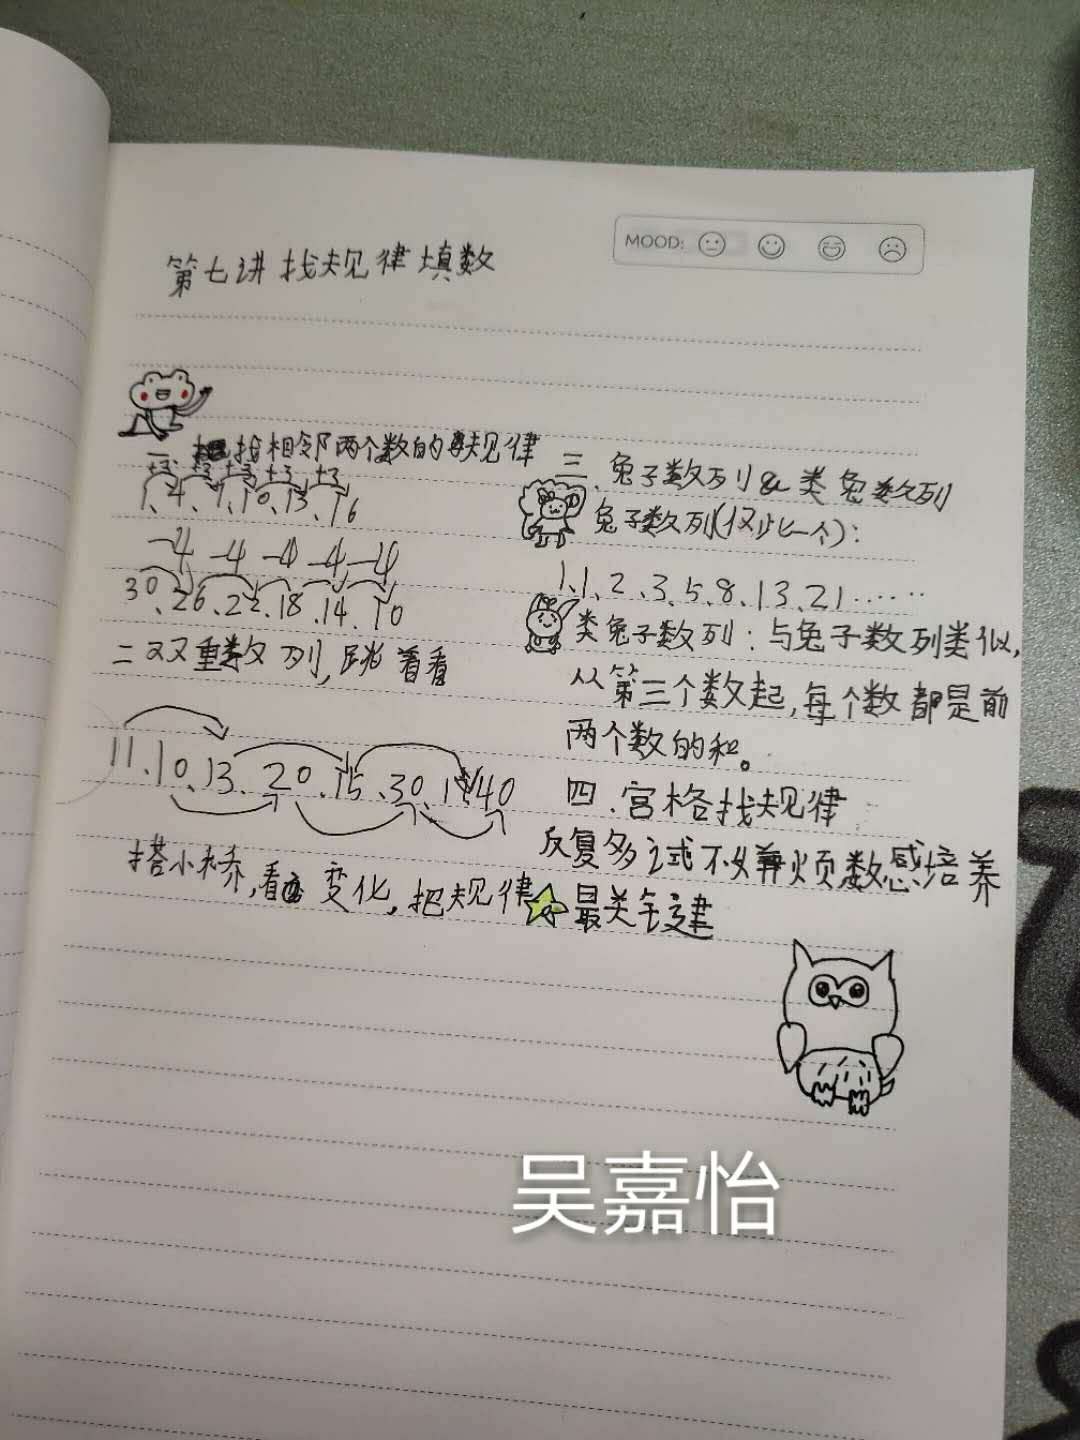 MOOD:
第七讲 找规律填数
一、找相邻两个数的规律
+3 +3 +3 +3 +3
1、4、7、10、13、16
-4 -4 -4 -4 -4
30、26、22、18、14、10
二双重数列,跳着看
11、10、13、20、15、30、17、40
搭小桥,看变化,把规律
三、兔子数列&类兔数列
兔子数列(仅此一个):
1、1、2、3、5、8、13、21……
类兔子数列:与兔子数列类似,
从第三个数起,每个数都是前
两个数的和。
四、宫格找规律
反复多试不嫌烦,数感培养
最关键
吴嘉怡